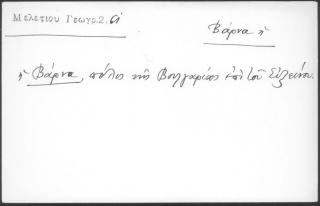 Μελετίου Γεωγρ.2.
Βάρνα ἡ
ἡ Βάρνα, πόλις τῆς Βουλγαρίας ἐπὶ τοῦ Εὐξείνου.